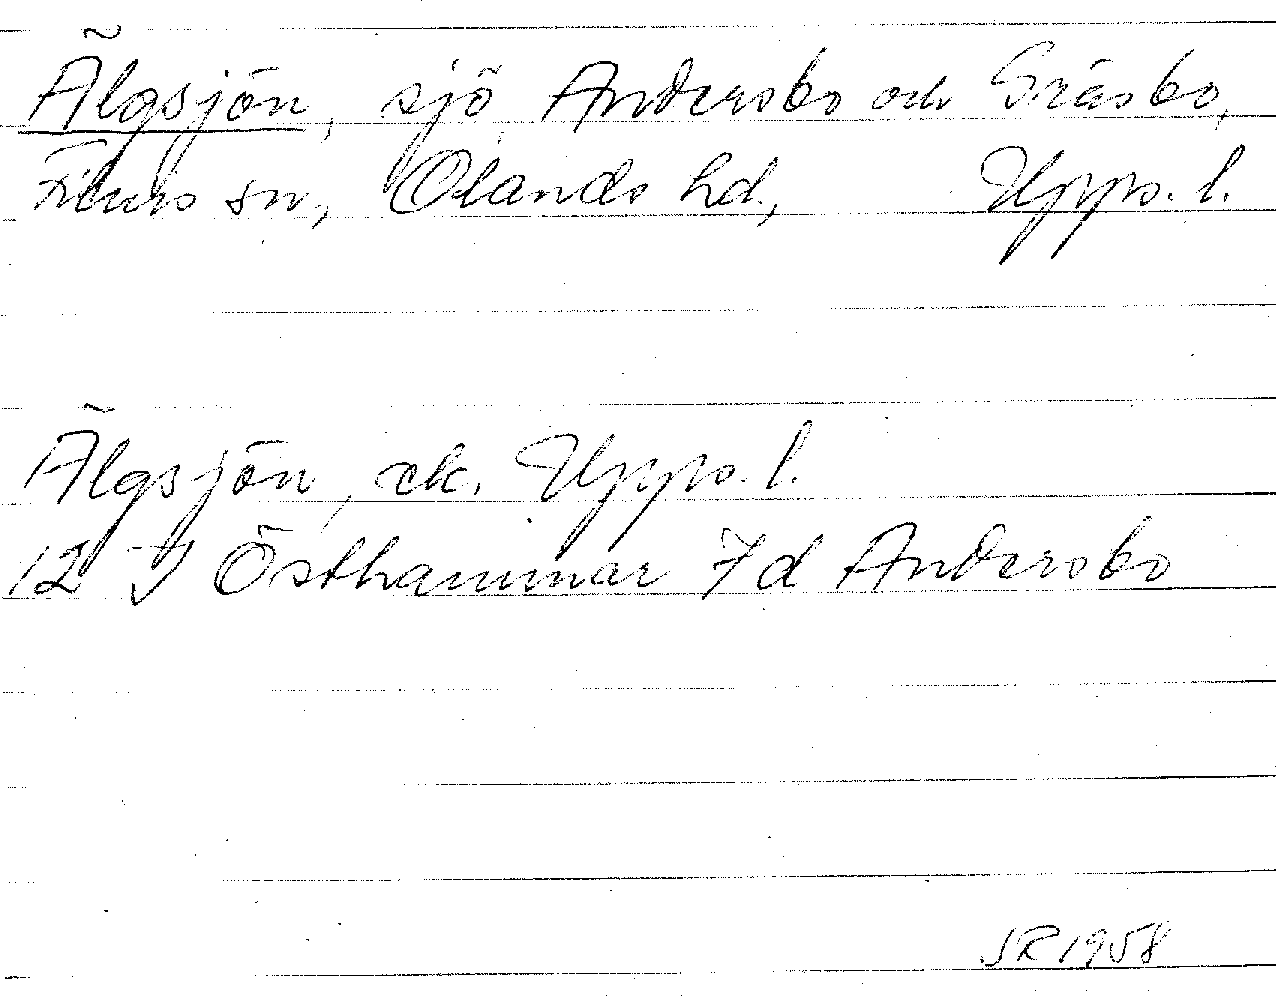 Älgsjön, sjö, Andersbo och Gräsbo,
Films sn, Olands hd, Upps. l.
Älgsjön, ek. Upps. l.
12 I Östhammar 7d Andersbo
SR 1958